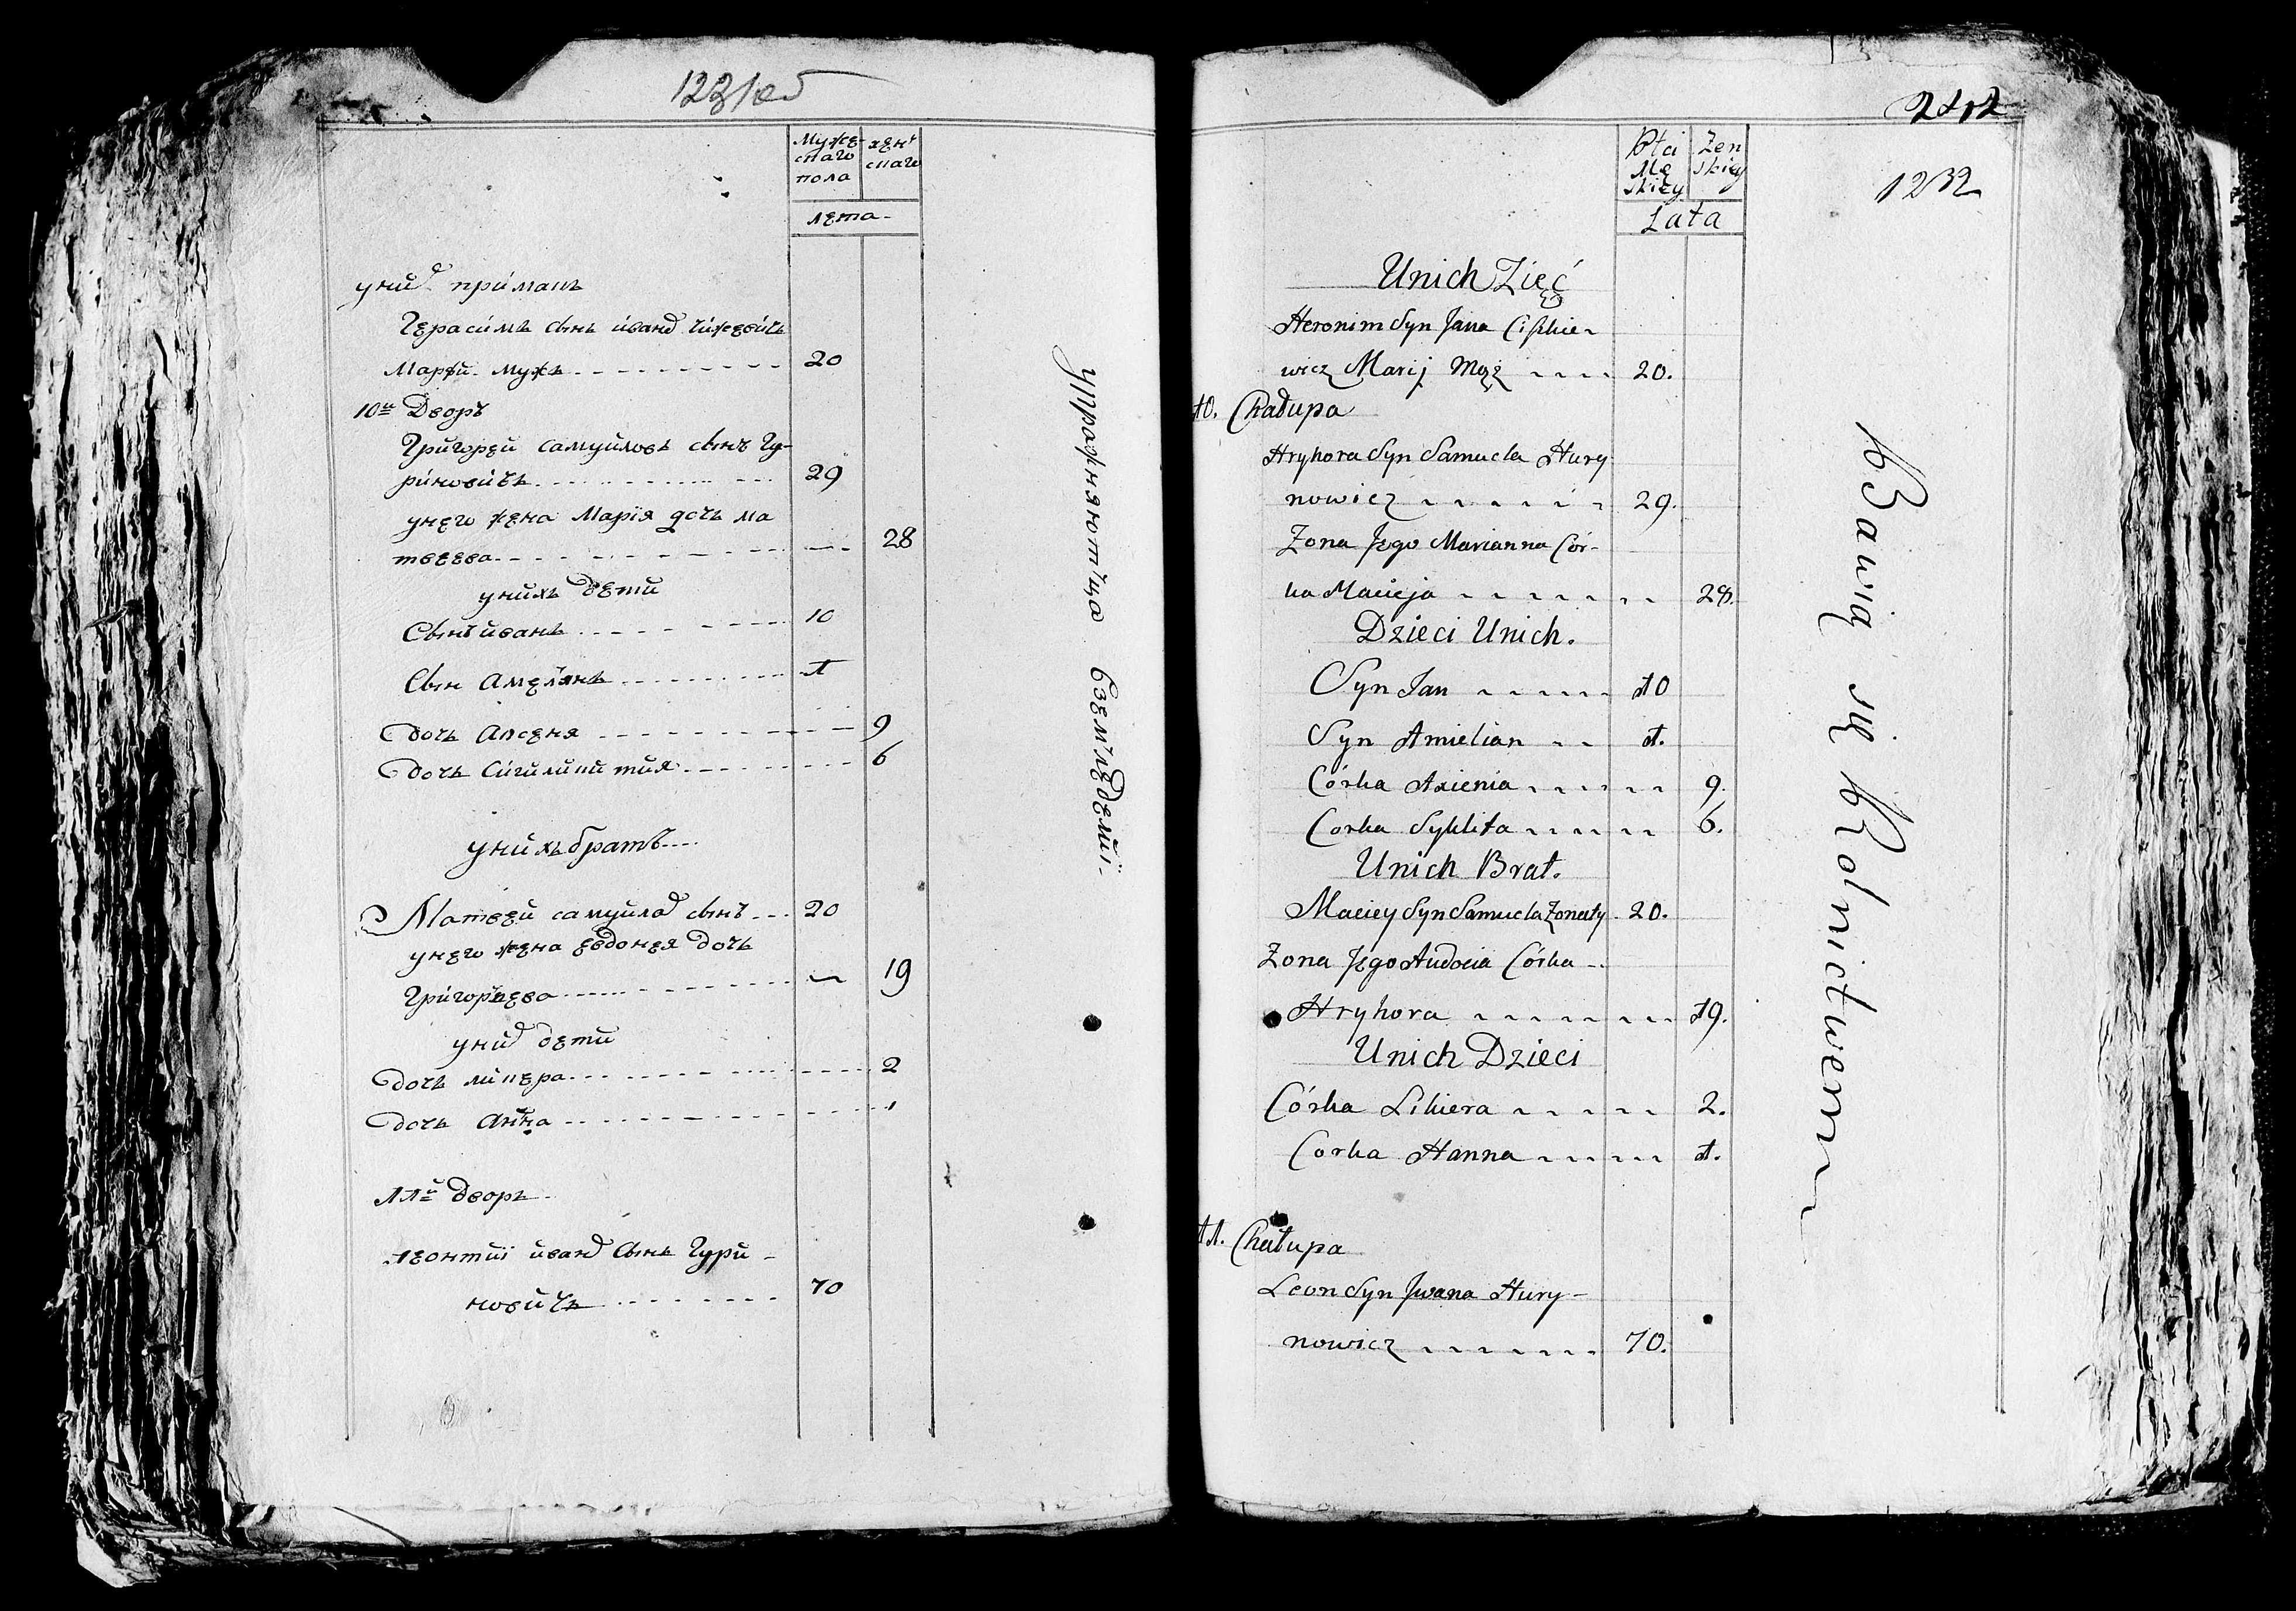 1231об
Мужес-
скаго
пола
женъ
скаго
лета
уних примакъ
Герасимъ сынъ иванов чижевичъ
Марïи мужъ 20
10й Дворъ
Григорей самуиловъ сынъ Гу-
риновичъ 29
унего жена Марïя дочь ма
твеева 28
унихъ дети
Сынъ иванъ 10
Сын амелянъ 1
дочь аксеня 9
дочь сигликития 6
унихъ братъ
Матвей самуилов сынъ 20
унего жена евдокея дочь
Григоръева 19
уних дети
дочь ликера 2
дочь анна 1
11й дворъ
леонтиi иванов сынъ Гури-
новичъ 70
упражняютъца вземледелиï
2412
1232
Płci
Mę
skiey
Zen
skiey
Lata
Unich Zięć
Heronim Syn Jana Ciszkie-
wicz Marij Mąż 20.
10. Chałupa
Hryhora Syn Samuela Hury
nowicz 29.
Zona Jego Marianna Cór-
ka Macieja 28.
Dzieci Unich.
Syn Jan 10
Syn Amielian 1.
Córka Axienia 9.
Corka Syklita 6.
Unich Brat.
Maciey Syn Samuela Zonaty 20.
Zona Jego Audocia Córka
Hryhora 19.
Unich Dzieci
Córka Likiera 2.
Corka Hanna 1.
11. Chałupa
Leon Syn Jwana Hury-
nowicz 70.
Bawią się Rolnictwem